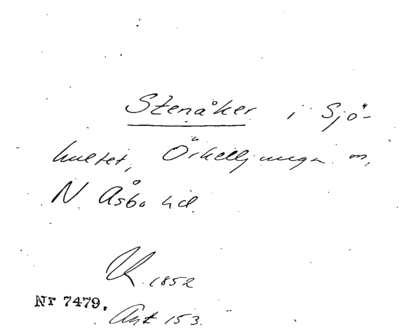 Stenåker i Sjö-
hultet, Örkelljunga sn,
N Åsbo hd.
1852
Nr 7479.
Akt 153.